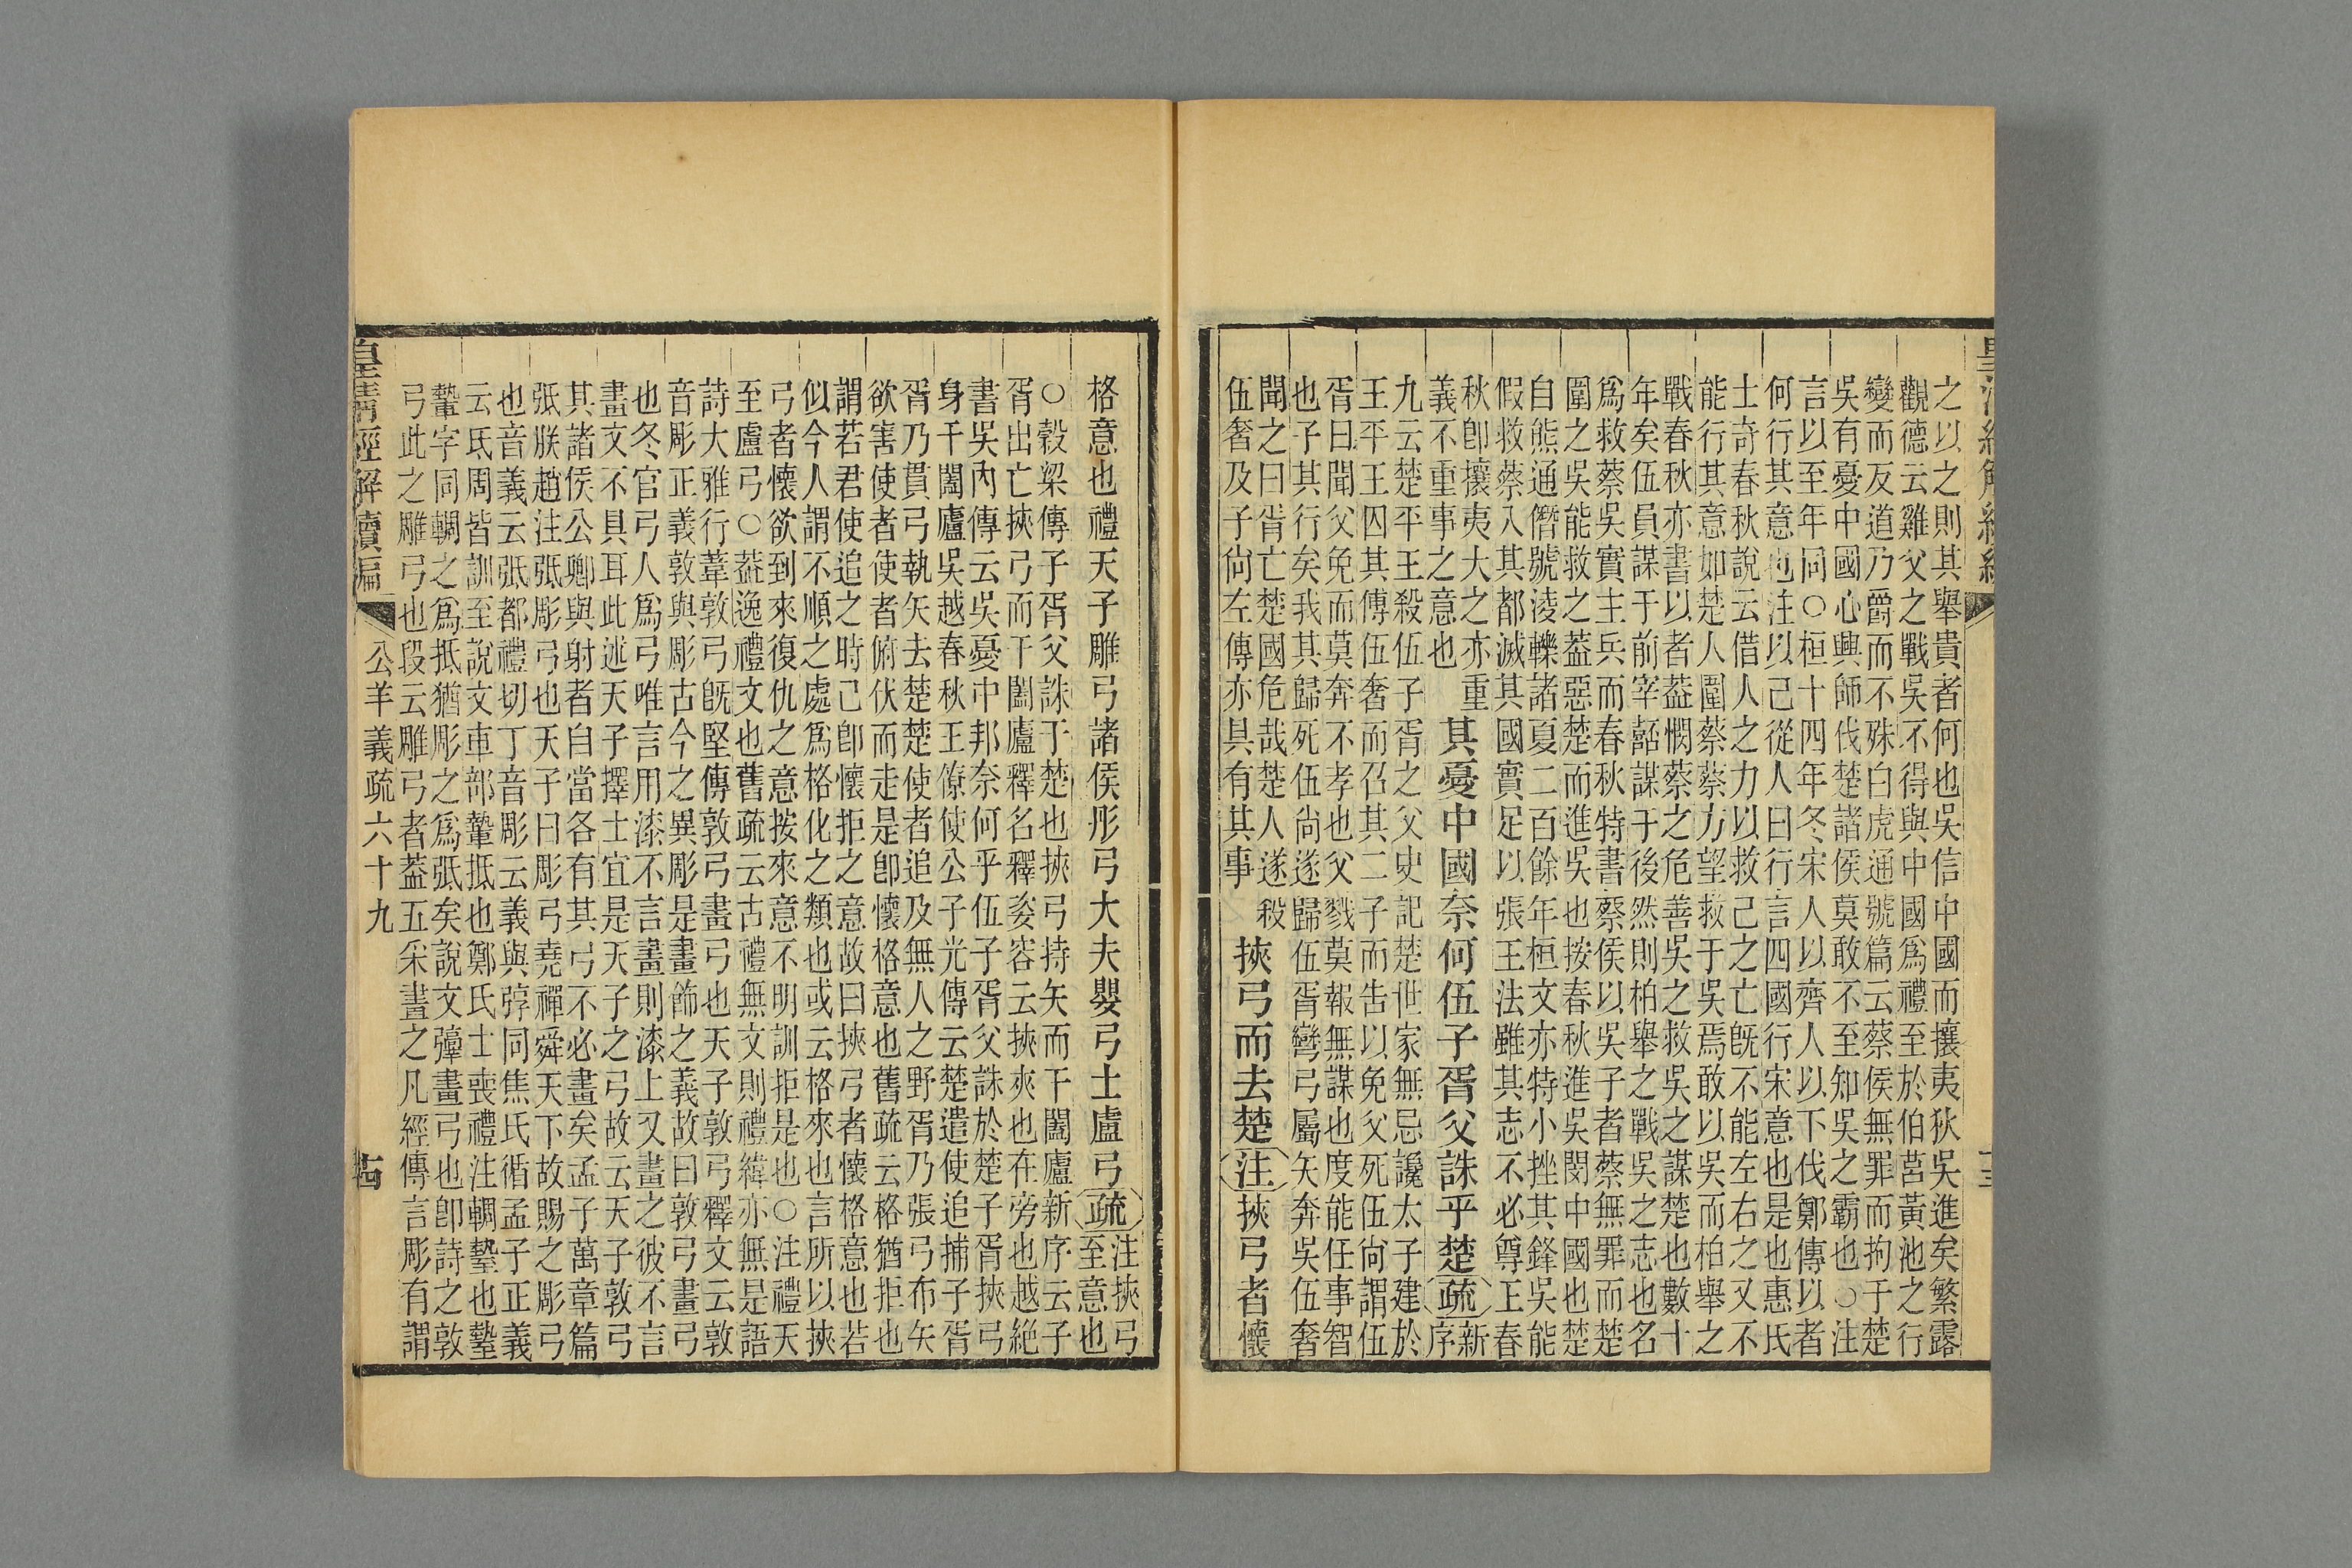 之以之則其舉貴者何也吳信中國而攘夷狄吳進矣繁露
觀德云雞父之戰吳不得與中國爲禮至於伯莒黃池之行
變而反道乃爵而不殊白虎通號篇云蔡侯無罪而拘于楚
吳有憂中國心興師伐楚諸侯莫敢不至知吳之霸也○注
言以至年同○桓十四年冬宋人以齊人以下伐鄭傳以者
何行其意也注以己從人曰行言四國行宋意也是也惠氏
士奇春秋說云借人之力以救己之亡既不能左右之又不
能行其意如楚人圍蔡蔡力望救于吳焉敢以吳而柏舉之
戰春秋亦書以者葢憫蔡之危善吳之救吳之謀楚也數十
年矣伍員謀于前宰嚭謀于後然則柏舉之戰吳之志也名
爲救蔡吳實主兵而春秋特書蔡侯以吳子者蔡無罪而楚
圍之吳能救之葢惡楚而進吳也按春秋進吳閔中國也楚
自熊通僭號淩轢諸夏二百餘年桓文亦特小挫其鋒吳能
假救蔡入其都滅其國實足以張王法雖其志不必尊王春
秋卽攘夷大之亦重
義不重事之意也
其憂中國奈何伍子胥父誅乎楚疏
新
序
九云楚平王殺伍子胥之父史記楚世家無忌讒太子建於
王平王囚其傅伍奢而召其二子而告以免父死伍尙謂伍
胥曰聞父免而莫奔不孝也父戮莫報無謀也度能任事智
也子其行矣我其歸死伍尙遂歸伍胥彎弓屬矢奔吳伍奢
聞之曰胥亡楚國危哉楚人遂殺
伍奢及子尙左傳亦具有其事
挾弓而去楚注挾弓者懷
格意也禮天子雕弓諸侯彤弓大夫嬰弓士盧弓疏
注挾弓
至意也
○穀梁傳子胥父誅于楚也挾弓持矢而干闔廬新序云子
胥出亡挾弓而干闔廬釋名釋姿容云挾夾也在旁也越絕
書吳內傳云吳憂中邦奈何乎伍子胥父誅於楚子胥挾弓
身干闔廬吳越春秋王僚使公子光傳云楚遣使追捕子胥
胥乃貫弓執矢去楚楚使者追及無人之野胥乃張弓布矢
欲害使者使者俯伏而走是卽懷格意也舊疏云格猶拒也
謂若君使追之時己卽懷拒之意故曰挾弓者懷格意也若
似今人謂不順之處爲格化之類也或云格來也言所以挾
弓者懷欲到來復仇之意按來意不明訓拒是也○注禮天
至盧弓○葢逸禮文也舊疏云古禮無文則禮緯亦無是語
詩大雅行葦敦弓既堅傳敦弓畫弓也天子敦弓釋文云敦
音彫正義敦與彫古今之異彫是畫飾之義故曰敦弓畫弓
也冬官弓人爲弓唯言用漆不言畫則漆上又畫之彼不言
畫文不具耳此述天子擇士宜是天子之弓故云天子敦弓
其諸侯公卿與射者自當各有其弓不必畫矣孟子萬章篇
弤朕趙注弤彫弓也天子曰彫弓堯禪舜天下故賜之彫弓
也音義云弤都禮切丁音彫云義與弴同焦氏循孟子正義
云氐周皆訓至說文車部蟄抵也鄭氏士喪禮注輖蟄也蟄
蟄字同輖之爲抵猶彫之爲弤矣說文弴畫弓也卽詩之敦
弓此之雕弓也段云雕弓者葢五采畫之凡經傳言彫有謂
皇清經解續編
公羊義疏六十九
古